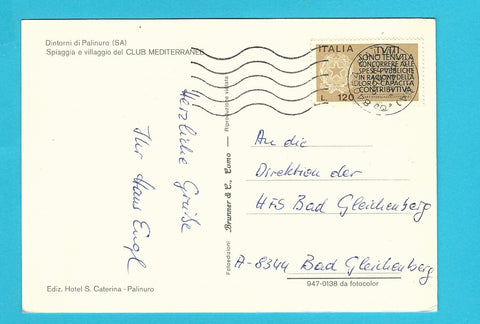 Dintorni di Palinuro (SA)
Spiaggia e villaggio del CLUB MEDITERRANEE
Herzliche Grüße
Ihr Hans Engl
Ediz. Hotel S. Caterina - Palinuro
Fotoedizioni Brunner & C., Como - Riproduzione vietata
ITALIA
L. 120
TUTTI
SONO TENUTI A
CONCORRERE ALLE
SPESE PUBBLICHE
IN RAGIONE DELLA
LORO CAPACITÀ
CONTRIBUTIVA
An die
Direktion der
HFS Bad Gleichenberg
A-8344 Bad Gleichenberg
947-0138 da fotocolor